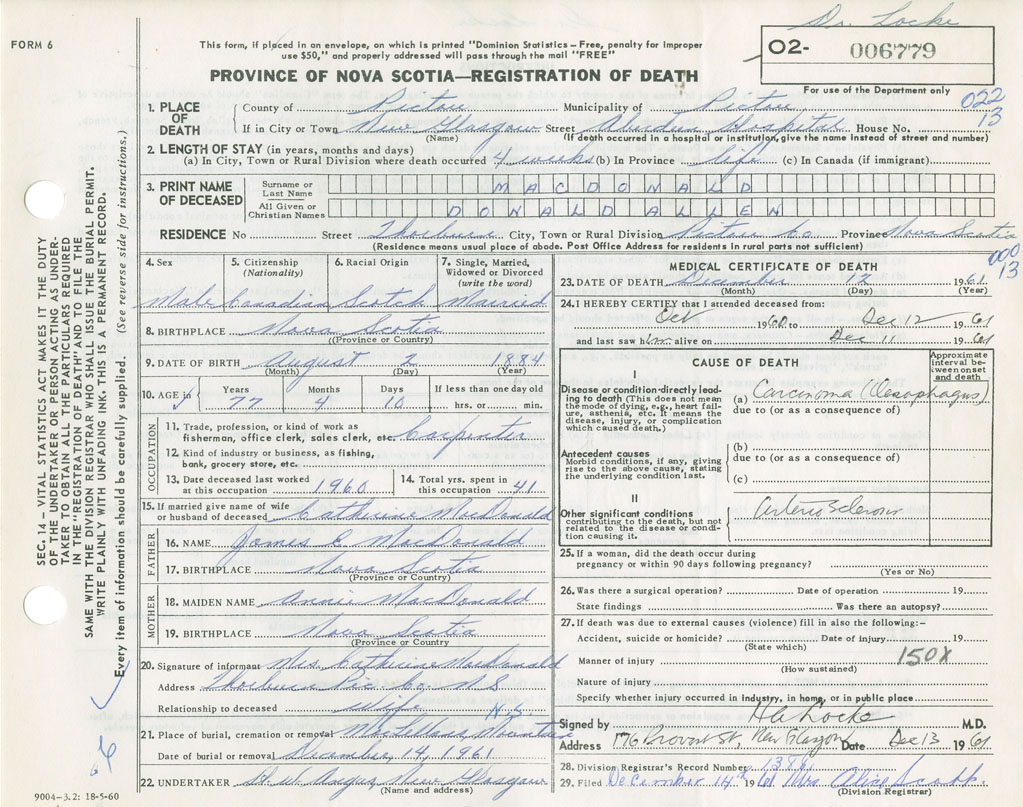 Dr. Locke
FORM 6
This form, if placed in an envelope, on which is printed "Dominion Statistics – Free, penalty for improper
use $50," and properly addressed will pass through the mail "FREE"
O2- 006779
PROVINCE OF NOVA SCOTIA—REGISTRATION OF DEATH
For use of the Department only
022
13
1. PLACE OF DEATH
County of Pictou Municipality of Pictou
If in City or Town New Glasgow Street Aberdeen Hospital House No.
(Name) (If death occurred in a hospital or institution, give the name instead of street and number)
2. LENGTH OF STAY (in years, months and days)
(a) In City, Town or Rural Division where death occurred 4 weeks (b) In Province life (c) In Canada (if immigrant)
3. PRINT NAME OF DECEASED
Surname or Last Name MACDONALD
All Given or Christian Names DONALD ALLEN
RESIDENCE No Street Thorburn City, Town or Rural Division Pictou Co Province Nova Scotia
(Residence means usual place of abode. Post Office Address for residents in rural parts not sufficient)
000
13
4. Sex 5. Citizenship (Nationality) 6. Racial Origin 7. Single, Married, Widowed or Divorced (write the word)
Male Canadian Scotch Married
8. BIRTHPLACE Nova Scotia
(Province or Country)
9. DATE OF BIRTH August 2 1884
(Month) (Day) (Year)
10. AGE in Years Months Days If less than one day old
77 4 10 hrs. or min.
OCCUPATION
11. Trade, profession, or kind of work as
fisherman, office clerk, sales clerk, etc. Carpenter
12. Kind of industry or business, as fishing,
bank, grocery store, etc.
13. Date deceased last worked at this occupation 1960 14. Total yrs. spent in this occupation 41
15. If married give name of wife
or husband of deceased Catherine MacDonald
FATHER
16. NAME James C MacDonald
17. BIRTHPLACE Nova Scotia
(Province or Country)
MOTHER
18. MAIDEN NAME Annie MacDonald
19. BIRTHPLACE Nova Scotia
(Province or Country
20. Signature of informant Mrs. Catherine MacDonald
Address Thorburn Pic Co. N S
Relationship to deceased wife N.S
21. Place of burial, cremation or removal McLellans Mountain
Date of burial or removal December 14, 1961
22. UNDERTAKER Angus New Glasgow
(Name and address)
MEDICAL CERTIFICATE OF DEATH
23. DATE OF DEATH December 12 1961
(Month) (Day) (Year)
24. I HEREBY CERTIFY that I attended deceased from:
Oct 1960 to Dec 12 1961
and last saw him alive on Dec 11 1961
CAUSE OF DEATH
Approximate interval between onset and death
I
Disease or condition directly leading to death (This does not mean the mode of dying, e.g., heart failure, asthenia, etc. It means the disease, injury, or complication which caused death.)
(a) Carcinoma (Oesophagus)
due to (or as a consequence of)
Antecedent causes
Morbid conditions, if any, giving rise to the above cause, stating the underlying condition last.
(b)
due to (or as a consequence of)
(c)
II
Other significant conditions
contributing to the death, but not related to the disease or condition causing it.
Arterio Sclerosis
25. If a woman, did the death occur during
pregnancy or within 90 days following pregnancy?
(Yes or No)
26. Was there a surgical operation? Date of operation 19
State findings Was there an autopsy?
27. If death was due to external causes (violence) fill in also the following:–
Accident, suicide or homicide? Date of injury 19
(State which)
Manner of injury 150X
(How sustained)
Nature of injury
Specify whether injury occurred in industry, in home, or in public place
Signed by H A Locke M.D.
Address 176 Provost St, New Glasgow Date Dec 13 1961
28. Division Registrar's Record Number 1388
29. Filed December 14th 1961 Mrs. Aline Scott
(Division Registrar)
SEC. 14 – VITAL STATISTICS ACT MAKES IT THE DUTY
OF THE UNDERTAKER OR PERSON ACTING AS UNDER-
TAKER TO OBTAIN ALL THE PARTICULARS REQUIRED
IN THE "REGISTRATION OF DEATH" AND TO FILE THE
SAME WITH THE DIVISION REGISTRAR WHO SHALL ISSUE THE BURIAL PERMIT.
WRITE PLAINLY WITH UNFADING INK. THIS IS A PERMANENT RECORD.
Every item of information should be carefully supplied. (See reverse side for instructions.)
9004–3.2: 18-5-60